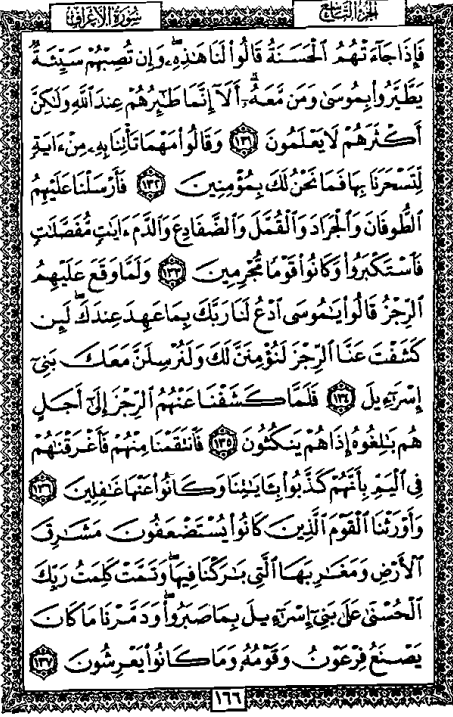 الجزء التاسع
سورة الأعراف
فَإِذَا جَآءَتْهُمُ ٱلْحَسَنَةُ قَالُوا۟ لَنَا هَٰذِهِۦ ۖ وَإِن تُصِبْهُمْ سَيِّئَةٌ
يَطَّيَّرُوا۟ بِمُوسَىٰ وَمَن مَّعَهُۥٓ ۗ أَلَآ إِنَّمَا طَٰٓئِرُهُمْ عِندَ ٱللَّهِ وَلَٰكِنَّ
أَكْثَرَهُمْ لَا يَعْلَمُونَ ١٣١ وَقَالُوا۟ مَهْمَا تَأْتِنَا بِهِۦ مِنْ ءَايَةٍ
لِّتَسْحَرَنَا بِهَا فَمَا نَحْنُ لَكَ بِمُؤْمِنِينَ ١٣٢ فَأَرْسَلْنَا عَلَيْهِمُ
ٱلطُّوفَانَ وَٱلْجَرَادَ وَٱلْقُمَّلَ وَٱلضَّفَادِعَ وَٱلدَّمَ ءَايَٰتٍ مُّفَصَّلَٰتٍ
فَٱسْتَكْبَرُوا۟ وَكَانُوا۟ قَوْمًا مُّجْرِمِينَ ١٣٣ وَلَمَّا وَقَعَ عَلَيْهِمُ
ٱلرِّجْزُ قَالُوا۟ يَٰمُوسَى ٱدْعُ لَنَا رَبَّكَ بِمَا عَهِدَ عِندَكَ ۖ لَئِن
كَشَفْتَ عَنَّا ٱلرِّجْزَ لَنُؤْمِنَنَّ لَكَ وَلَنُرْسِلَنَّ مَعَكَ بَنِىٓ
إِسْرَٰٓءِيلَ ١٣٤ فَلَمَّا كَشَفْنَا عَنْهُمُ ٱلرِّجْزَ إِلَىٰٓ أَجَلٍ
هُم بَٰلِغُوهُ إِذَا هُمْ يَنكُثُونَ ١٣٥ فَٱنتَقَمْنَا مِنْهُمْ فَأَغْرَقْنَٰهُمْ
فِى ٱلْيَمِّ بِأَنَّهُمْ كَذَّبُوا۟ بِـَٔايَٰتِنَا وَكَانُوا۟ عَنْهَا غَٰفِلِينَ ١٣٦
وَأَوْرَثْنَا ٱلْقَوْمَ ٱلَّذِينَ كَانُوا۟ يُسْتَضْعَفُونَ مَشَٰرِقَ
ٱلْأَرْضِ وَمَغَٰرِبَهَا ٱلَّتِى بَٰرَكْنَا فِيهَا ۖ وَتَمَّتْ كَلِمَتُ رَبِّكَ
ٱلْحُسْنَىٰ عَلَىٰ بَنِىٓ إِسْرَٰٓءِيلَ بِمَا صَبَرُوا۟ ۖ وَدَمَّرْنَا مَا كَانَ
يَصْنَعُ فِرْعَوْنُ وَقَوْمُهُۥ وَمَا كَانُوا۟ يَعْرِشُونَ ١٣٧
١٦٦